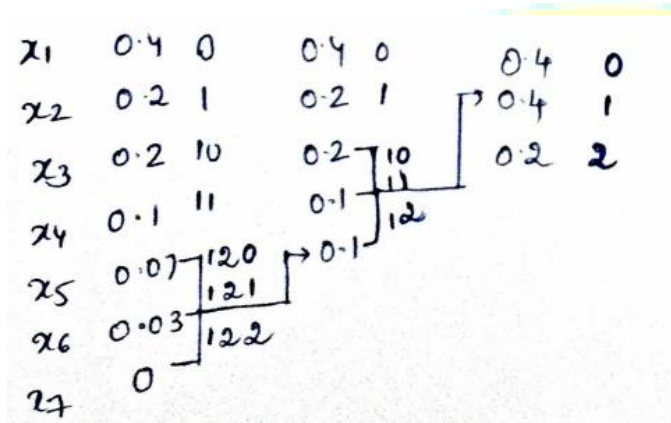 x1 0.4 0 0.4 0 0.4 0
x2 0.2 1 0.2 1 0.4 1
x3 0.2 10 0.2 10 0.2 2
11
x4 0.1 11 0.1 12
x5 0.07 120 0.1
121
x6 0.03 122
x7 0